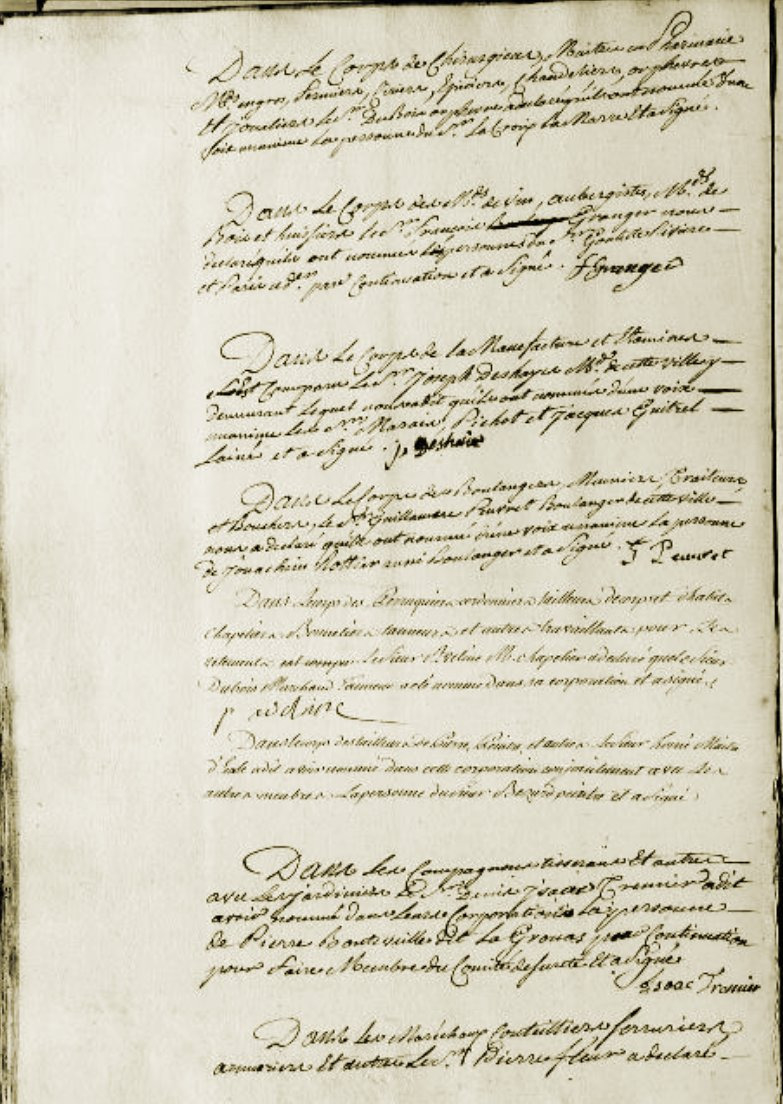 Dans le Corps de Chirurgiens, Maitre en Pharmacie
Mds en gros, Ciriers, Epiciers, Chandeliers, orphevres
Et Joueliers le Sr. DuBois orphevre a declaré qu'ils ont nommé d'une
voix unanime la personne du Sr. la Croix la Marre Et a Signé.
Dans le Corps des Mds de vin, aubergistes, Mds de
Bois et huissiers le Sr. François Granger nous
declare qu'ils ont nommé les personnes du Sr.
et Paris par Continuation et a Signé. f Granger
Dans le Corps de la Manufacture et Etamines
Est Comparu le Sr. Joseph Deshayes Md. de cette ville y
demeurant lequel nous a dit qu'ils ont nommés d'une voix
unanime les Srs. Marais, Pichot et Jacques Guitrel
Lainé et a Signé. J Deshaie
Dans le Corps des Boulangers, Meuniers, Traiteurs
et Bouchers, le Sr. Guillaume Peuvret Boulanger de cette ville
nous a declaré qu'ils ont nommé d'une voix unanime la personne
de Jouachim Rottier ainé Boulanger et a Signé. Peuvret
Dans le corps des Perruquiers cordonniers tailleurs de corps et d'habits
Chapeliers Bonnetiers tanneurs et autres travaillants pour les
vetements est comparu le Sieur M. chapelier a declaré que le Sieur
Dubois Marchand Tanneur a été nommé dans sa corporation et a signé.
Dans le corps des tailleurs de Pierre, Peintres, et autres le Sieur Maitre
d'Ecole a dit avoir nommé dans cette corporation conjointement avec les
autres membres la personne du sieur Bezard peintre et a signé
Dans les Compagnons tisserans Et autres
avec les jardiniers le Sr. Denis Isaac Tremier a dit
avoir nommé dans leurs Corporations la personne
de Pierre dit La Grouas par Continuation
pour faire Membre du Comité de sureté Et a Signé
Isaac Tremier
Dans les Maréchaux Coutelliers Serruriers
armuriers Et autres le Sr. Pierre fleur a declaré